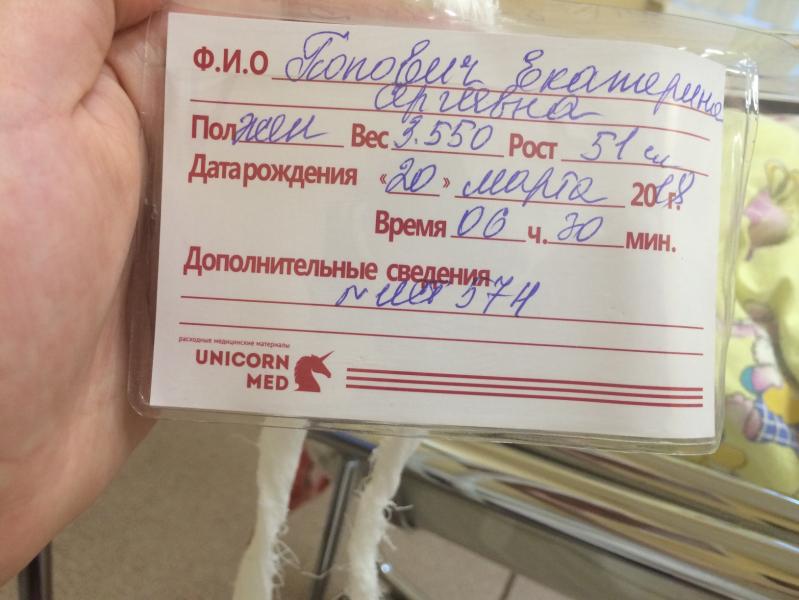 Ф.И.О Попович Екатерина
Сергеевна
Пол жен Вес 3.550 Рост 51 см
Дата рождения «20» марта 2018 г.
Время 06 ч. 30 мин.
Дополнительные сведения
574
расходные медицинские материалы
UNICORN
MED